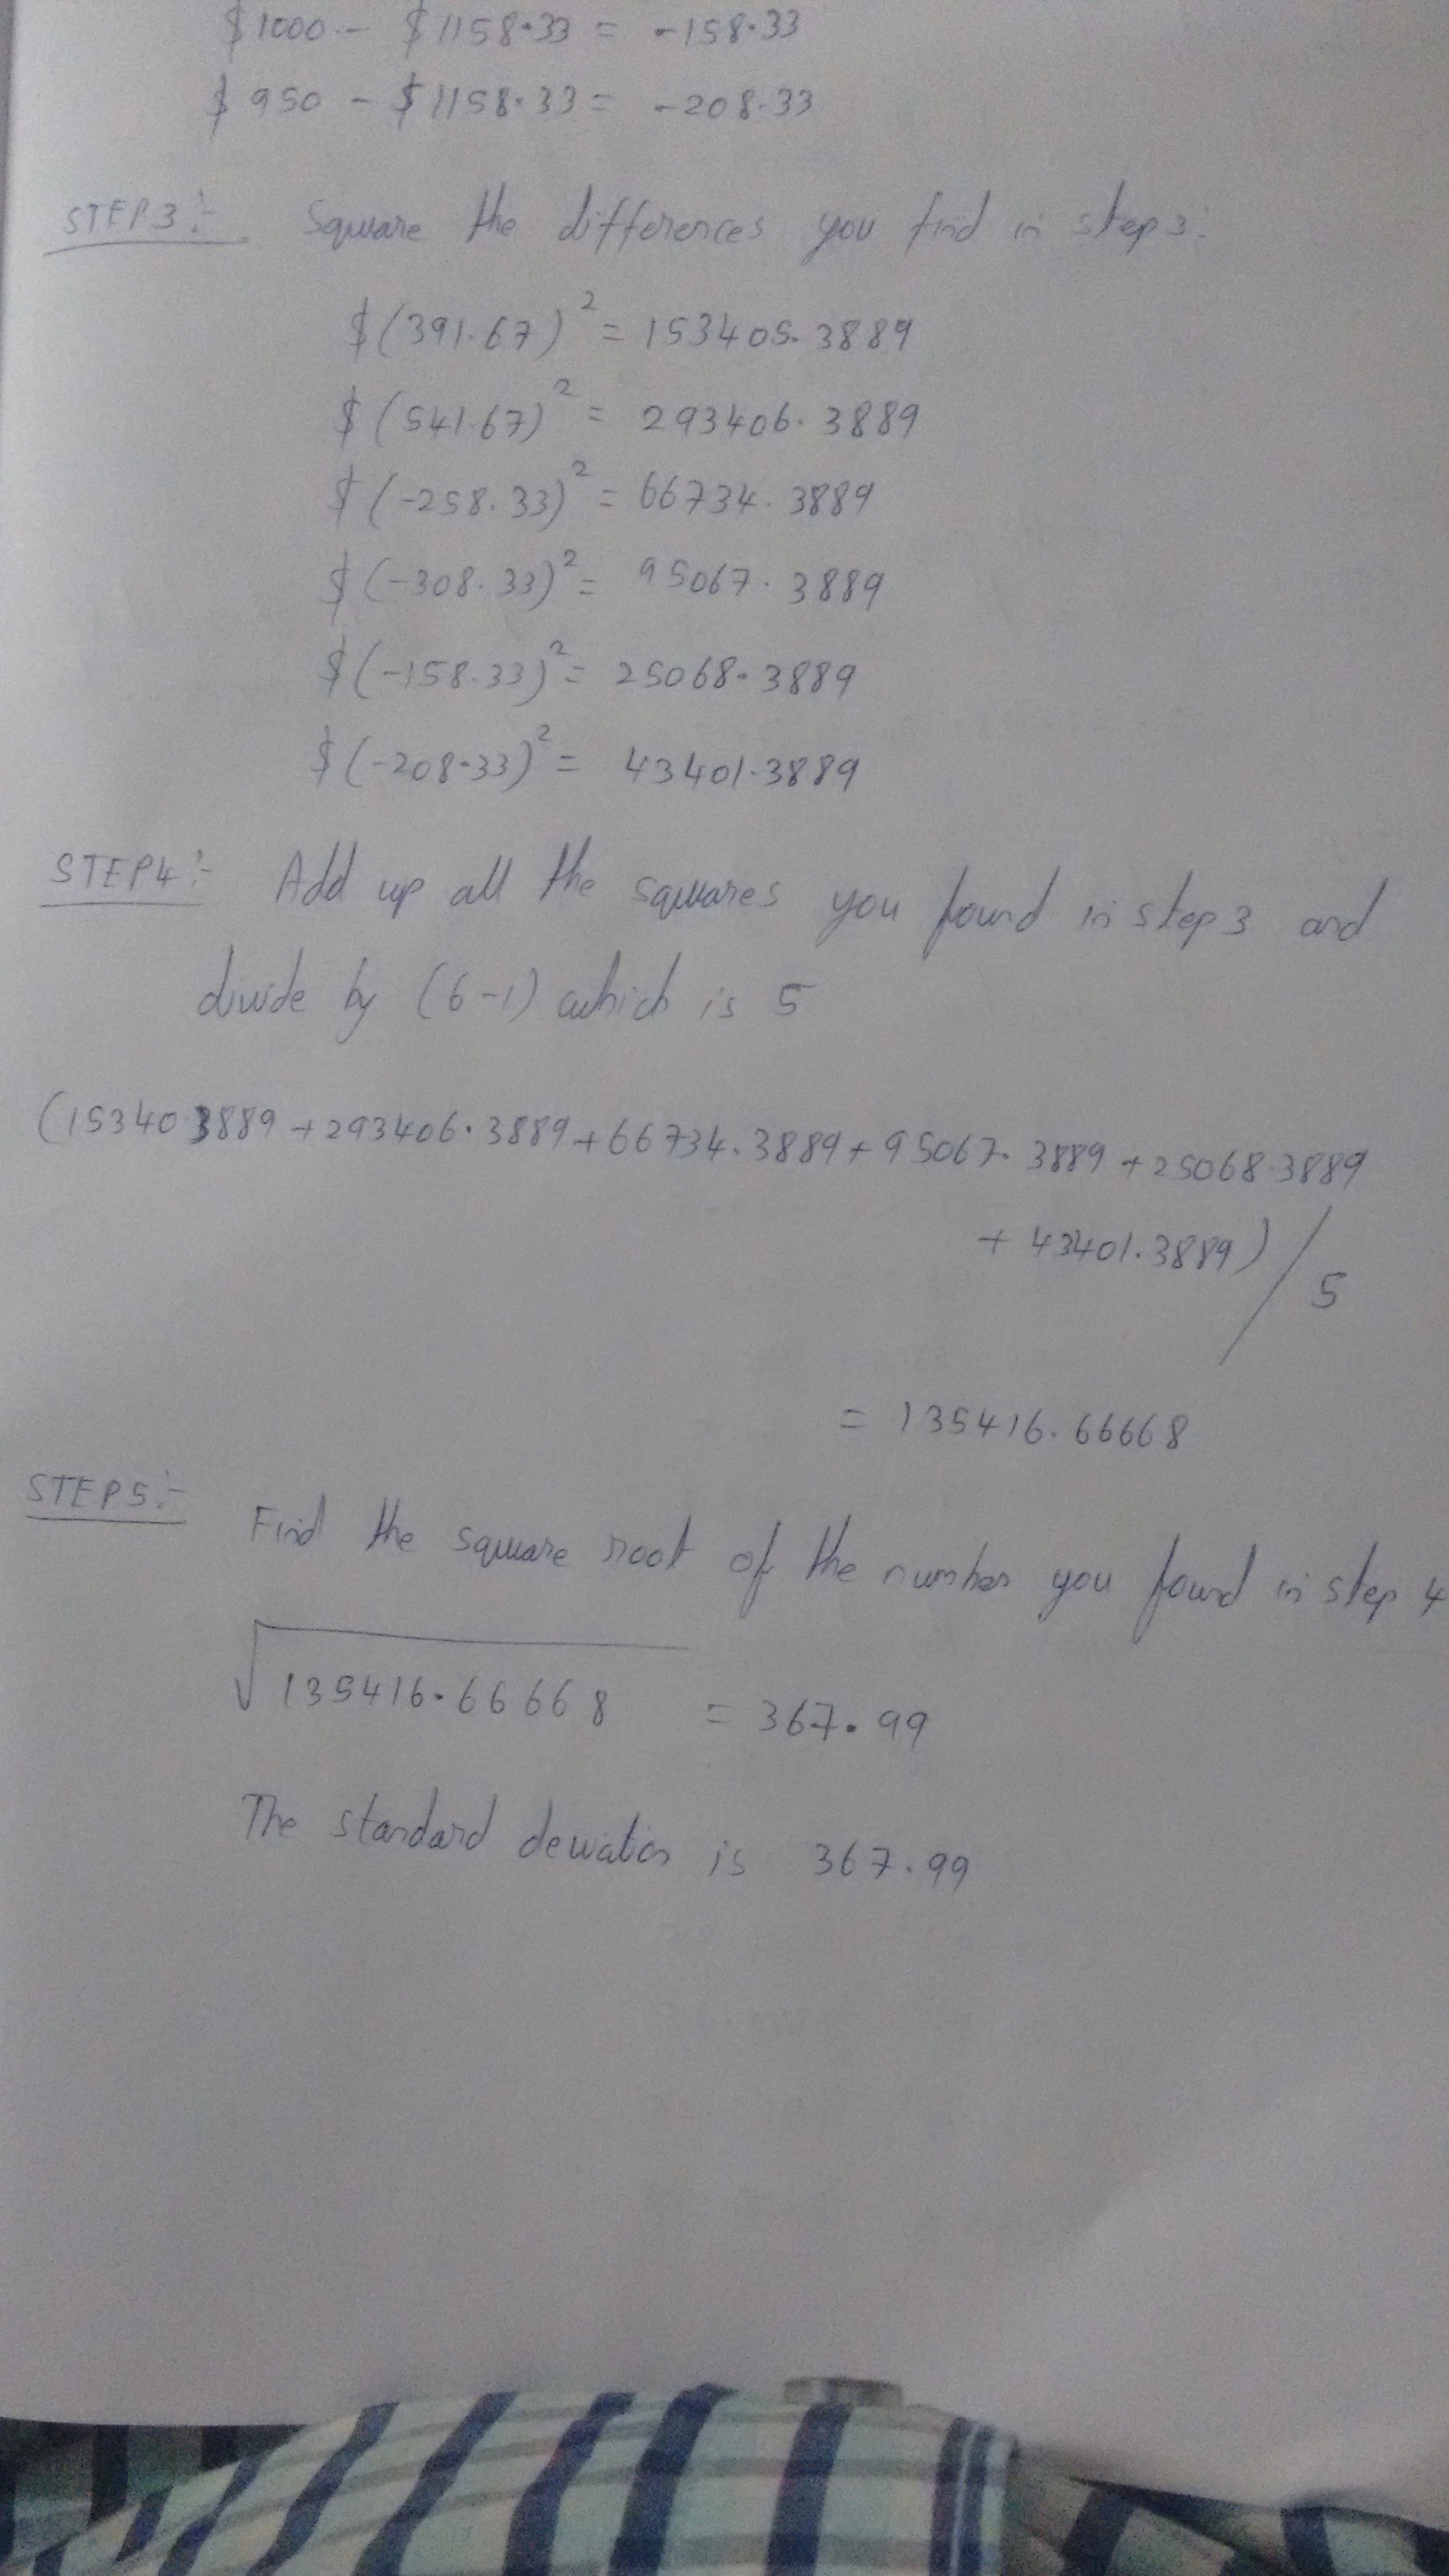 $1000 - $1158.33 = -158.33
$950 - $1158.33 = -208.33
STEP3:- Square the differences you find in step3:
$(391.67)² = 153405.3889
$(541.67)² = 293406.3889
$(-258.33)² = 66734.3889
$(-308.33)² = 95067.3889
$(-158.33)² = 25068.3889
$(-208.33)² = 43401.3889
STEP4:- Add up all the squares you found in step3 and
divide by (6-1) which is 5
(15340.3889 + 293406.3889 + 66734.3889 + 95067.3889 + 25068.3889
+ 43401.3889) / 5
= 135416.66668
STEP5:- Find the square root of the number you found in step 4
√135416.66668 = 367.99
The standard deviation is 367.99